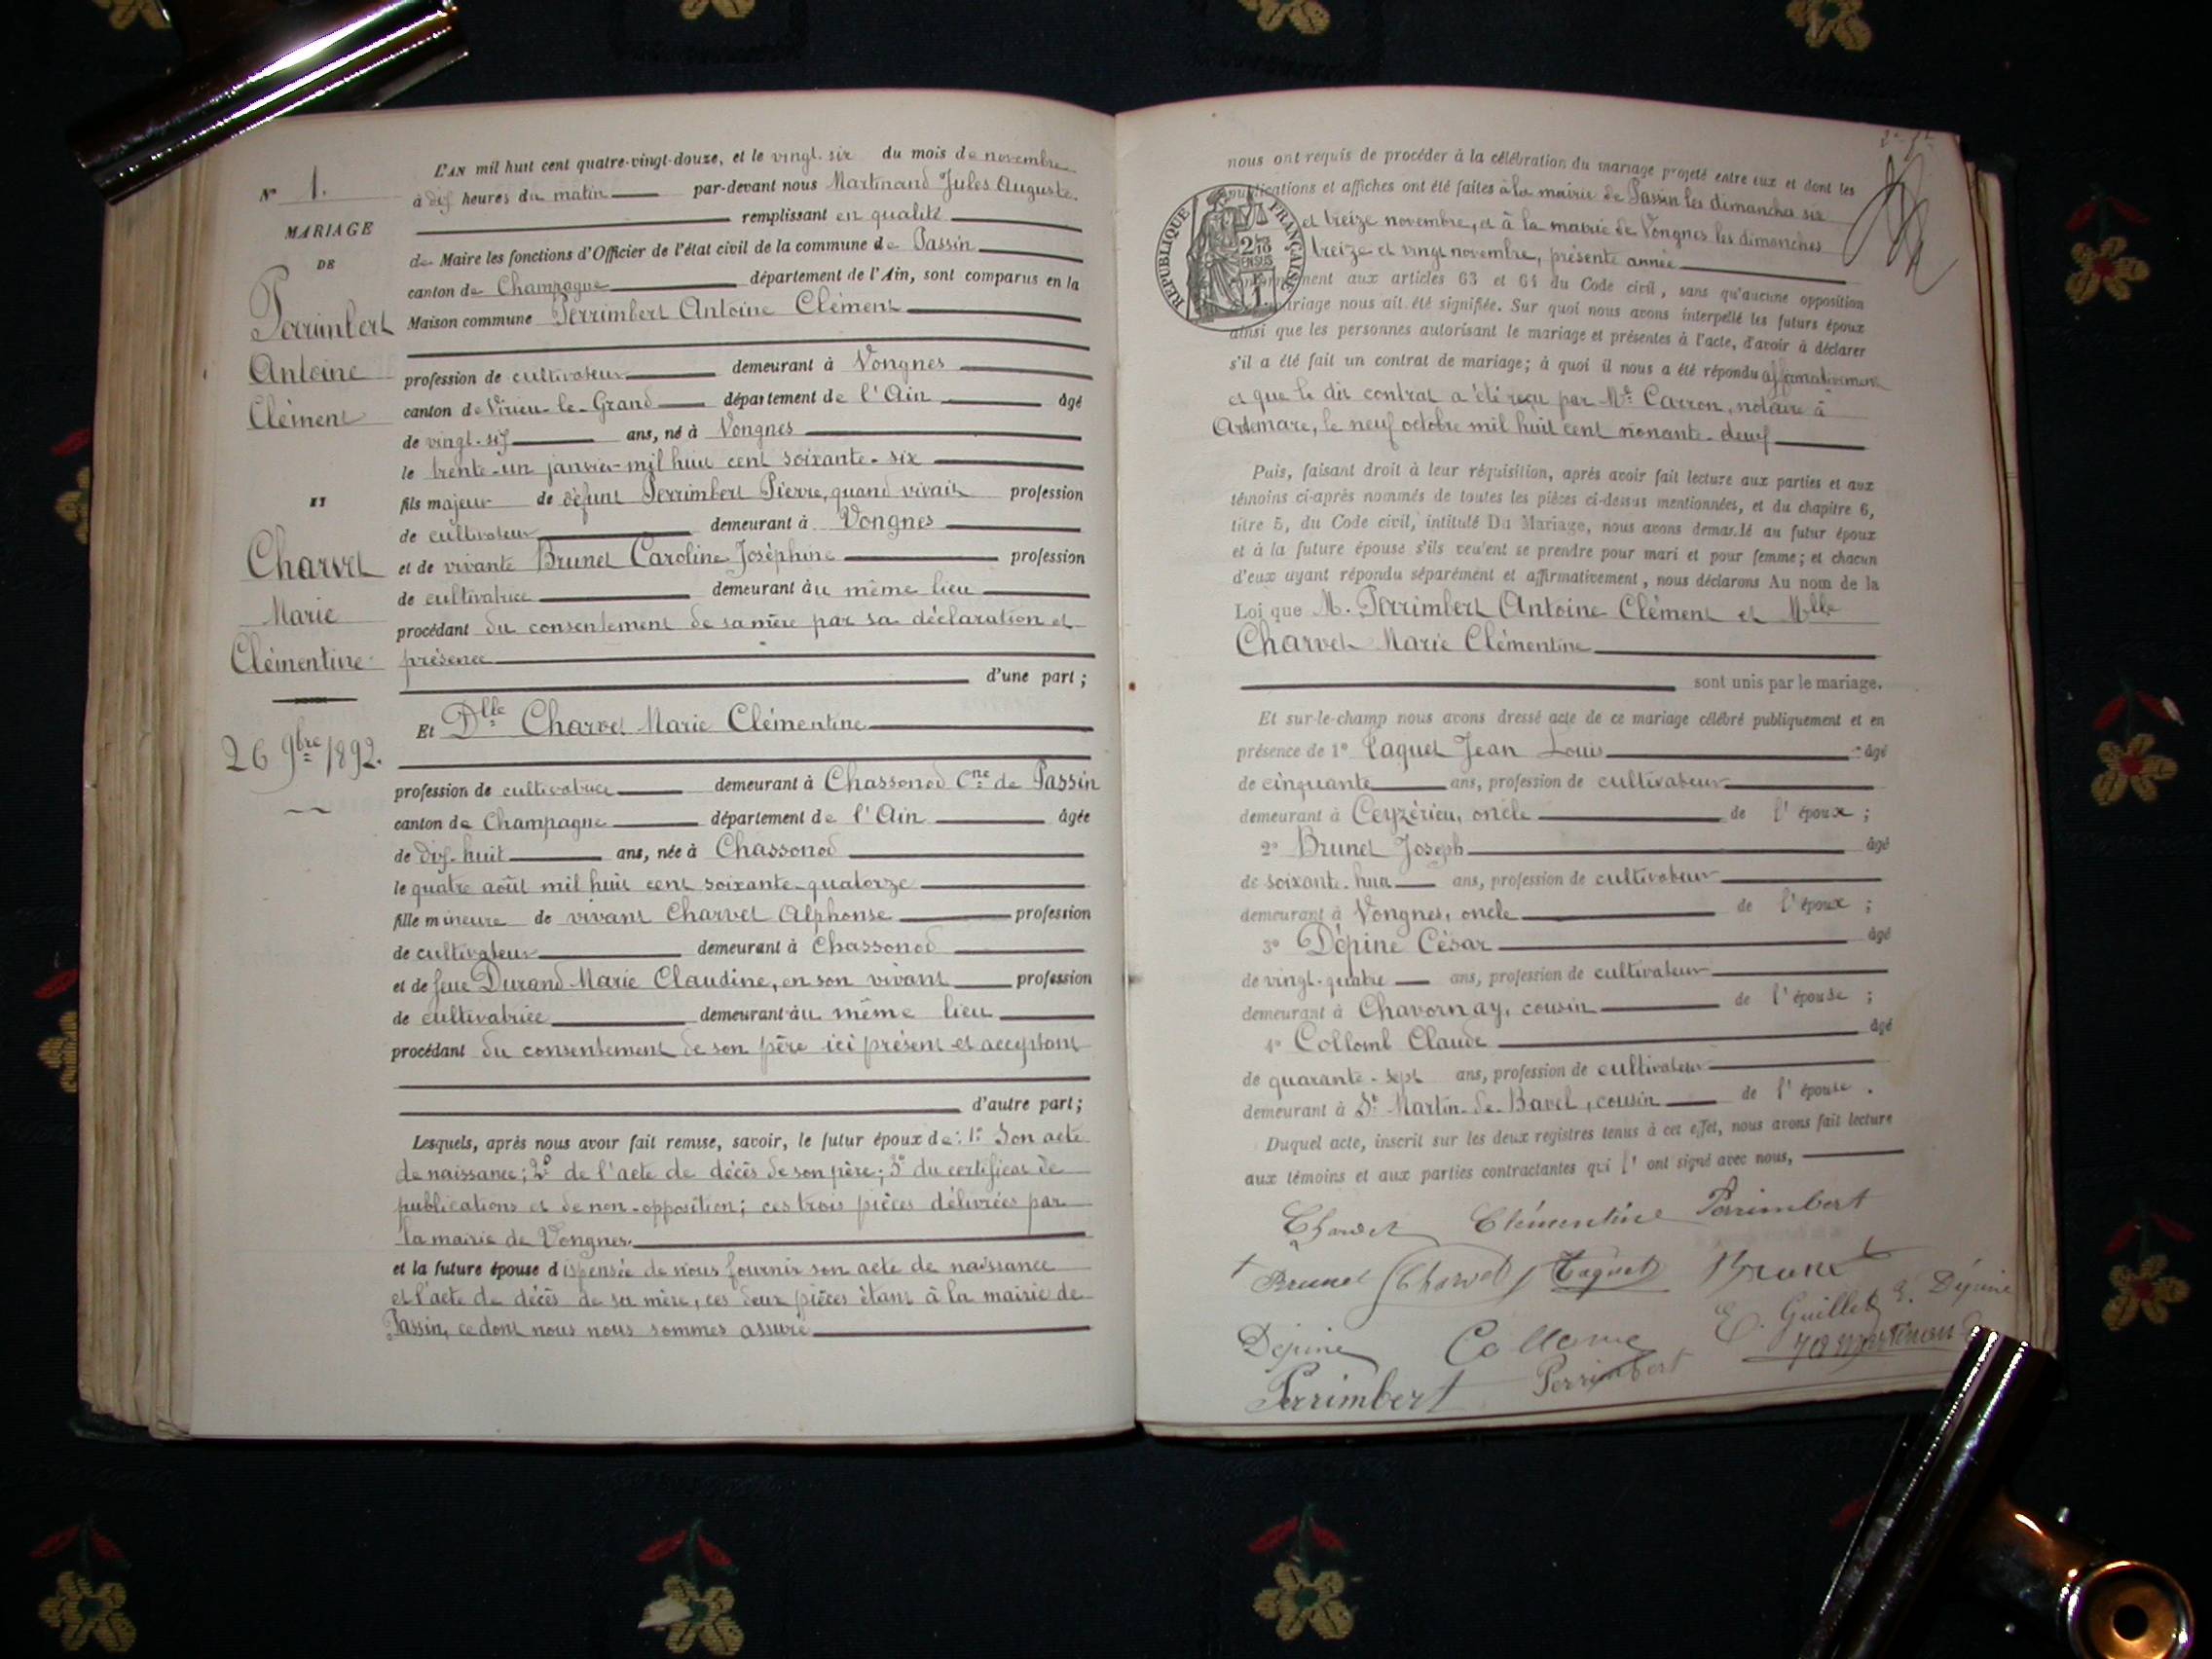 L'AN mil huit cent quatre-vingt-douze, et le vingt-six du mois de novembre
N° 1.
à dix heures du matin par-devant nous Martinand Jules Auguste.
MARIAGE
remplissant en qualité
DE
de Maire les fonctions d'Officier de l'état civil de la commune de Passin
canton de Champagne département de l'Ain, sont comparus en la
Perrimbert
Maison commune Perrimbert Antoine Clément
Antoine
profession de cultivateur demeurant à Vongnes
Clément
canton de Virieu-le-Grand département de l'Ain âgé
de vingt-six ans, né à Vongnes
le trente-un janvier mil huit cent soixante-six
ET
fils majeur de défunt Perrimbert Pierre, quand vivait profession
de cultivateur demeurant à Vongnes
Charvet
et de vivante Brunet Caroline Joséphine profession
de cultivatrice demeurant au même lieu
Marie
procédant du consentement de sa mère par sa déclaration et
Clémentine
présence
d'une part ;
Et Dlle Charvet Marie Clémentine
26 9bre 1892.
profession de cultivatrice demeurant à Chassonod Cne de Passin
canton de Champagne département de l'Ain âgée
de dix-huit ans, née à Chassonod
le quatre août mil huit cent soixante-quatorze
fille mineure de vivant Charvet Alphonse profession
de cultivateur demeurant à Chassonod
et de feue Durand Marie Claudine, en son vivant profession
de cultivatrice demeurant au même lieu
procédant du consentement de son père ici présent et acceptant
d'autre part ;
Lesquels, après nous avoir fait remise, savoir, le futur époux de : 1° Son acte
de naissance ; 2° de l'acte de décès de son père ; 3° du certificat de
publications et de non-opposition ; ces trois pièces délivrées par
la mairie de Vongnes.
et la future épouse dispensée de nous fournir son acte de naissance
et l'acte de décès de sa mère, ces deux pièces étant à la mairie de
Passin, ce dont nous nous sommes assuré
nous ont requis de procéder à la célébration du mariage projeté entre eux et dont les
publications et affiches ont été faites à la mairie de Passin les dimanches six
et treize novembre, et à la mairie de Vongnes les dimanches
treize et vingt novembre, présente année
RÉPUBLIQUE FRANÇAISE
aux articles 63 et 64 du Code civil, sans qu'aucune opposition
mariage nous ait été signifiée. Sur quoi nous avons interpellé les futurs époux
ainsi que les personnes autorisant le mariage et présentes à l'acte, d'avoir à déclarer
s'il a été fait un contrat de mariage ; à quoi il nous a été répondu affirmativement
et que le dit contrat a été reçu par Me Carron, notaire à
Artemare, le neuf octobre mil huit cent nonante-deux
Puis, faisant droit à leur réquisition, après avoir fait lecture aux parties et aux
témoins ci-après nommés de toutes les pièces ci-dessus mentionnées, et du chapitre 6,
titre 5, du Code civil, intitulé Du Mariage, nous avons demandé au futur époux
et à la future épouse s'ils veulent se prendre pour mari et pour femme ; et chacun
d'eux ayant répondu séparément et affirmativement, nous déclarons Au nom de la
Loi que M. Perrimbert Antoine Clément et Mlle
Charvet Marie Clémentine
sont unis par le mariage.
Et sur-le-champ nous avons dressé acte de ce mariage célébré publiquement et en
présence de 1° Taquet Jean Louis âgé
de cinquante ans, profession de cultivateur
demeurant à Ceyzérieu, oncle de l'époux ;
2° Brunet Joseph âgé
de soixante-huit ans, profession de cultivateur
demeurant à Vongnes, oncle de l'époux ;
3° Dépine César âgé
de vingt-quatre ans, profession de cultivateur
demeurant à Chavornay, cousin de l'épouse ;
4° Collomb Claude âgé
de quarante-sept ans, profession de cultivateur
demeurant à St Martin-de-Bavel, cousin de l'épouse.
Duquel acte, inscrit sur les deux registres tenus à cet effet, nous avons fait lecture
aux témoins et aux parties contractantes qui l'ont signé avec nous,
Charvet Clémentine Perrimbert
Brunet Charvet Taquet Brunet
E. Guillet E. Dépine
Dépine Collomb
Perrimbert Perrimbert